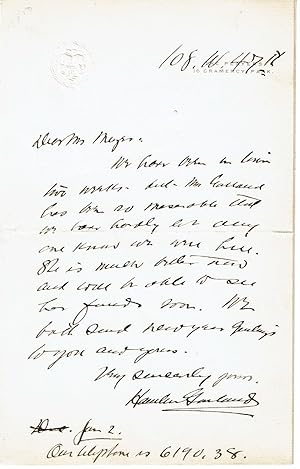 108. W. 47th
16 GRAMERCY PARK.
Dear Mr
We have been in town
two weeks - but Mrs Garland
has been so miserable that
we have hardly let any
one know we were here.
She is much better now
and will be able to see
her friends soon. We
both send new year greetings
to you and yours.
Very sincerely yours.
Hamlin Garland
Jan 2.
Our telephone is 6190. 38.